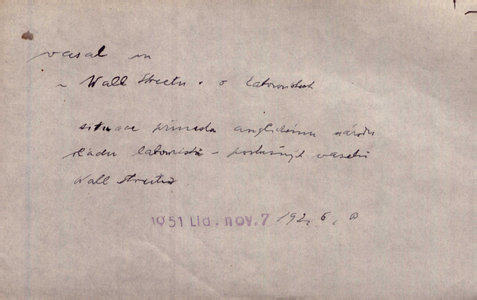 vasal m
~ Wall Streetu . o labouristech
situace přinesla anglickému národu
vládu labouristů – poslušných vasalů
Wall Streetu
1951 Lid. nov. 7 192, 6,